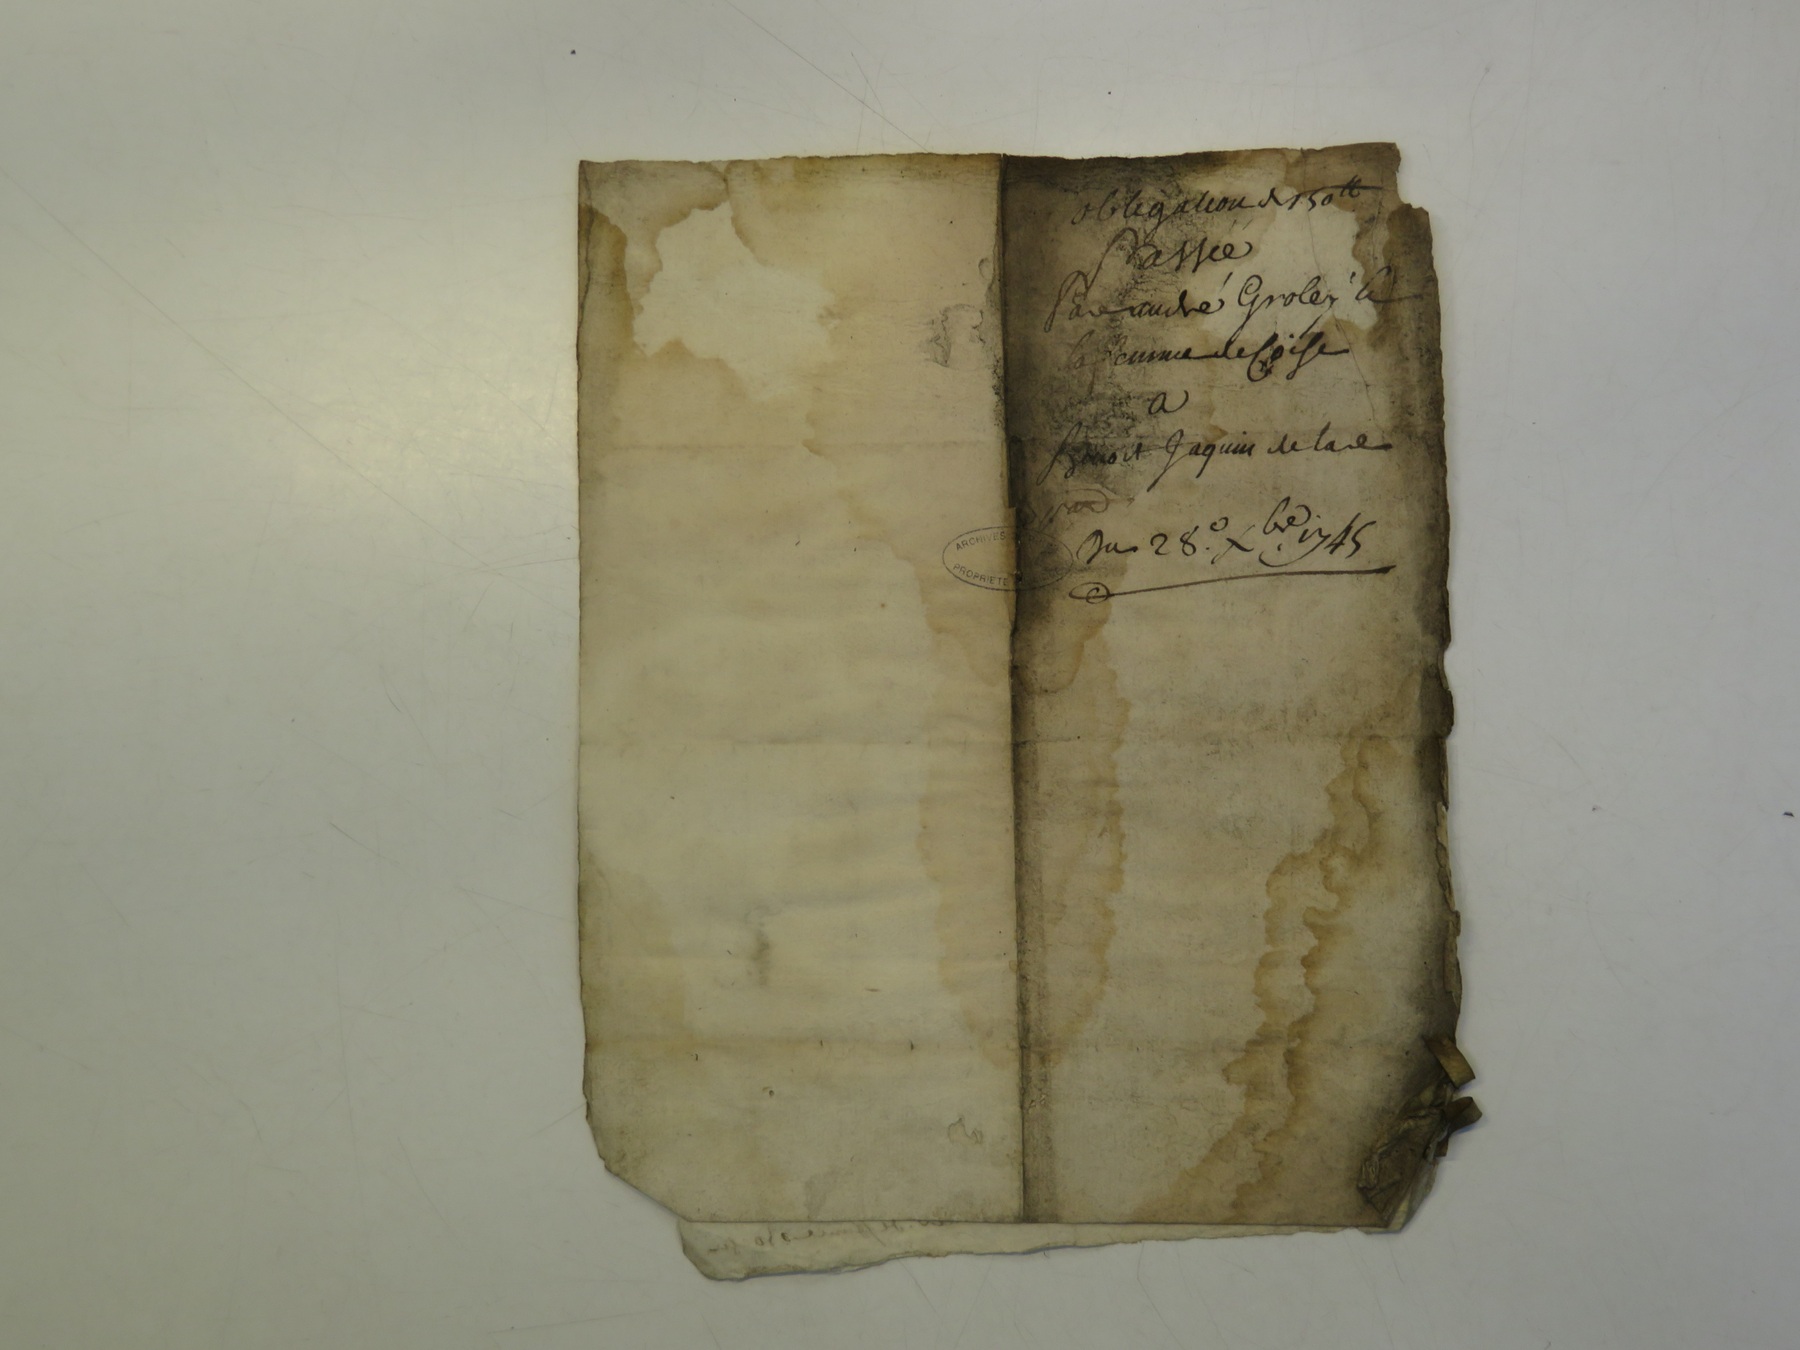 obligation de 150ᵗᵗ
Passée
Par andré Groley &
la femme de Coise
a
Benoit Jaquin de Lare
Du 28.e Xbre 1745
ARCHIVES
PROPRIETE